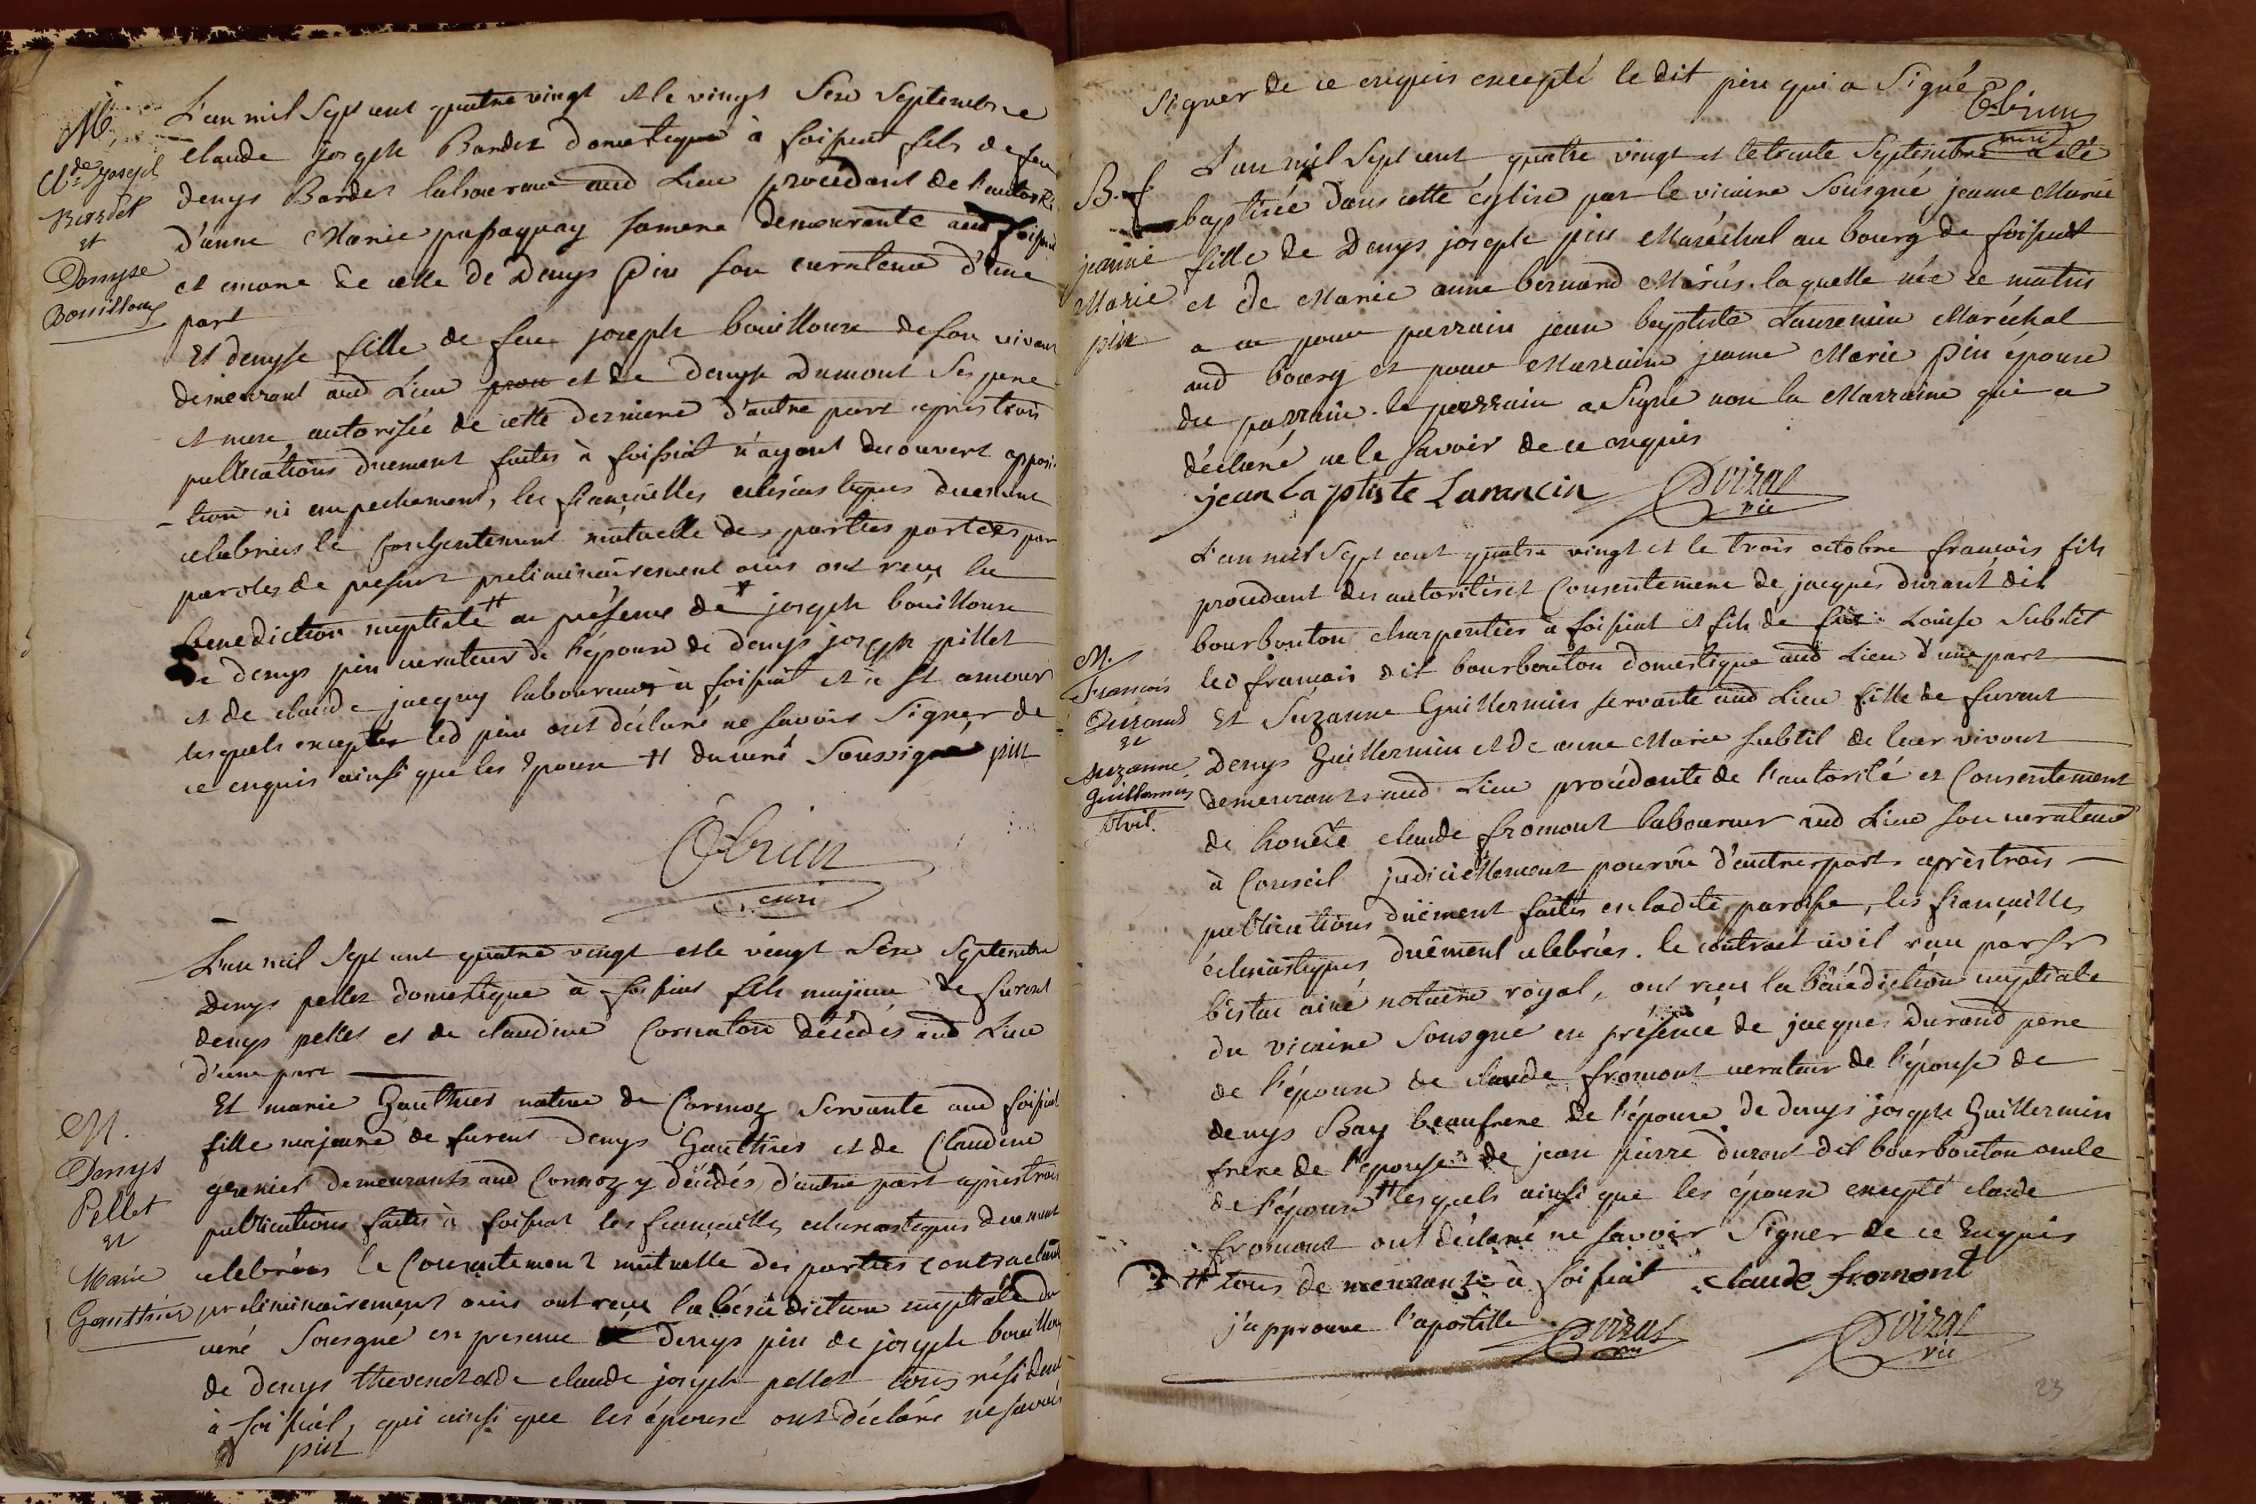 M.
Cl.de joseph
Bardet
et
Denyse
Bouilloux
L'an mil sept cent quatre vingt et le vingt six septembre
claude joseph Bardet domestique à foissiat fils de feu
denys Bardet laboureur aud Lieu procédant de l'autorité
d'anne Marie passaquay sa mere demeurante aud foissiat
et encore de celle de Denys Pin son curateur d'une
part
Et denyse fille de feu joseph bouilloux de son vivant
demeurant aud Lieu et de Denyse Dumont ses pere
et mere autorisée de cette derniere d'autre part après trois
publications duement faites à foissiat n'ayant decouvert opposi-
-tion ni empechement, les fiançailles eclesiastiques duement
celebrées le consentement mutuelle des parties portées par
paroles de present preliminairement ouis ont reçu la
benediction nuptiale # en présence de joseph bouilloux
de denys pin curateur de l'époux de denys joseph pillet
et de claude jacquy laboureurs à foissiat et à St amour
lesquels exceptés led pin ont déclaré ne savoir signer de
ce enquis ainsi que les époux # du curé soussigné pin
Ebrien
curé
M.
Denys
Pellet
et
Marie
Gauthier
L'an mil sept cent quatre vingt et le vingt six septembre
Denys pellet domestique à foissiat fils majeur de furent
denys pellet et de claudine Cornaton décédés aud Lieu
d'une part
Et marie Gauthier native de Cormoz servante aud foissiat
fille majeure de furent Denys Gauthier et de Claudine
grenier demeurants aud Cormoz y décédés d'autre part après trois
publications faites à foissiat les fiançailles eclesiastiques duement
celebrées le consentement mutuelle des parties contractantes
preliminairement ouis ont reçu la bénédiction nuptiale du
curé sousigné en presence de denys pin de joseph bouilloux
de denys thevenet et de claude joseph pellet tous résidents
à foissiat, qui ainsi que les époux ont déclaré ne savoir
pin
signer de ce enquis excepté le dit pin qui a signé
Ebrien
curé
B. f
jeanne
Marie
pin
L'an mil sept cent quatre vingt et le trente septembre a été
baptisée dans cette église par le vicaire sousigné, jeanne Marie
fille de Denys joseph pin Maréchal au bourg de foissiat
et de Marie anne bernard Mariés. laquelle née ce matin
a eu pour parrain jean baptiste Laurencin Maréchal
aud bourg et pour Marraine jeanne Marie Pin épouse
du parrain. le parrain a signé non la Marraine qui a
déclaré ne le savoir de ce enquis
jean baptiste Larancin Poizat
vic
M.
François
Durand
et
Suzanne
Guillermin
L'an mil sept cent quatre vingt et le trois octobre françois fils
procedant des autorités et Consentement de jacques durant dit
bourbouton charpentier à foissiat et fils de Louise Subtil
led françois dit bourbouton domestique aud Lieu d'une part
Et Suzanne Guillermin servante aud Lieu fille de furent
Denys Guillermin et de anne Marie subtil de leur vivant
demeurants aud Lieu procédante de l'autorité et Consentement
de honête claude fromont laboureur aud Lieu son curateur
à Conseil judiciellement pourvu d'autre part après trois
publications duëment faites en ladite paroisse, les fiançailles
éclesiastiques duëment celebrées. le contract civil reçu par Sr
ainé notaire royal, ont reçu la bénédiction nuptiale
du vicaire sousigné en présence de jacques Durand pere
de l'époux de claude fromont curateur de l'épouse de
denys Bay beaufrere de l'époux de denys joseph Guillermin
frere de l'épouse de jean pierre durant dit bourbouton oncle
de l'époux # lesquels ainsi que les époux excepté claude
fromont ont déclaré ne savoir signer de ce Enquis
# tous demeurants à foissiat claude fromont
j'approuve l'apostille Poizat
vic
Poizat
vic
23